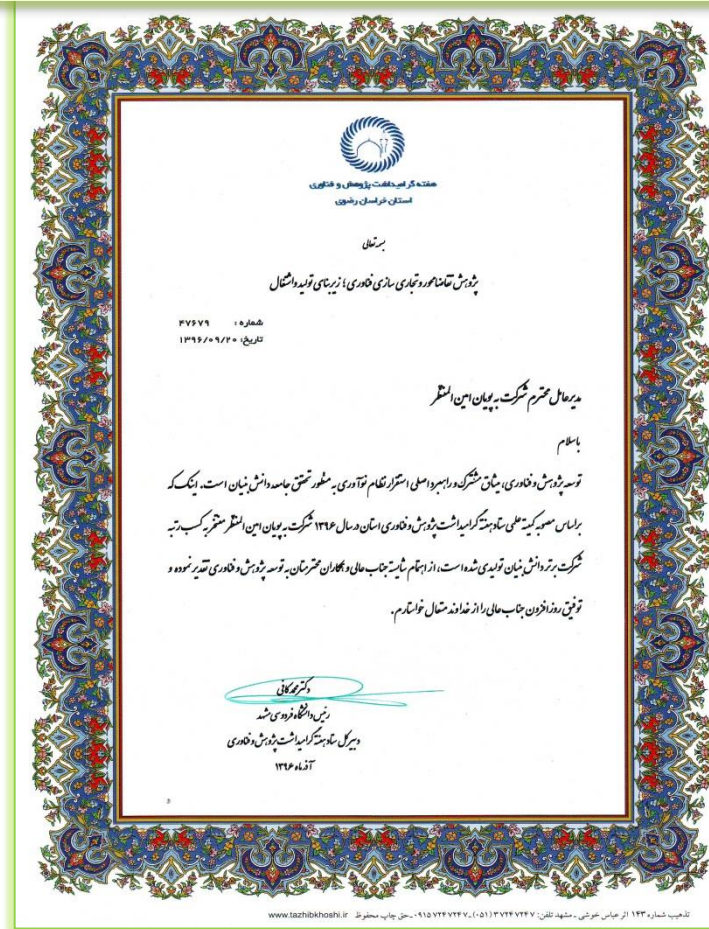 هفته گرامیداشت پژوهش و فناوری
استان خراسان رضوی
بسمه تعالی
پژوهش تقاضامحور و تجاری سازی فناوری؛ زیربنای تولید و اشتغال
شماره : ۴۷۶۷۹
تاریخ: ۱۳۹۶/۰۹/۲۰
مدیرعامل محترم شرکت به پویان امین المنتظر
باسلام
توسعه پژوهش و فناوری، میثاق مشترک و راهبرد اصلی استقرار نظام نوآوری به منظور تحقق جامعه دانش بنیان است. اینک که
براساس مصوبه کمیته علمی ستاد هفته گرامیداشت پژوهش و فناوری استان در سال ۱۳۹۶ شرکت به پویان امین المنتظر مفتخر به کسب رتبه
شرکت برتر دانش بنیان تولیدی شده است، از اهتمام شایسته جناب عالی و همکاران محترمتان به توسعه پژوهش و فناوری تقدیر نموده و
توفیق روزافزون جناب عالی را از خداوند متعال خواستارم.
دکتر محمد کافی
رئیس دانشگاه فردوسی مشهد
دبیرکل ستاد هفته گرامیداشت پژوهش و فناوری
آذرماه ۱۳۹۶
تذهیب شماره ۱۴۳ اثر عباس خوشی ـ مشهد تلفن: ۳۷۲۴۷۲۴۷ (۰۵۱) ـ ۰۹۱۵۷۲۴۷۲۴۷ ـ حق چاپ محفوظ www.tazhibkhoshi.ir